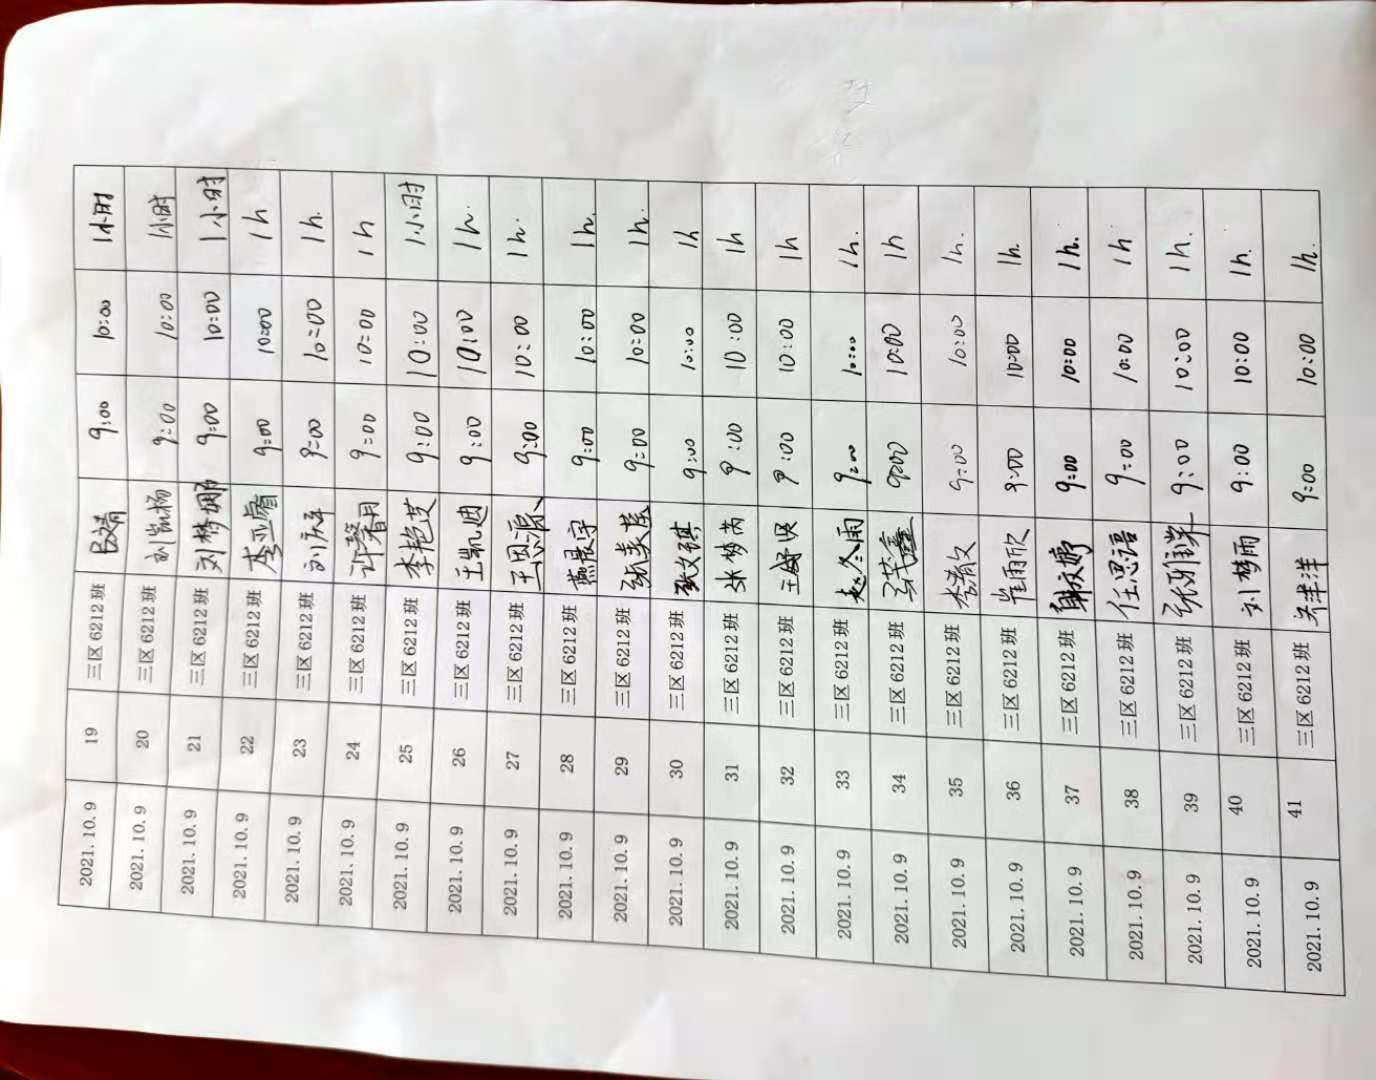 2021.10.9 19 三区6212班 9:00 10:00 1小时
2021.10.9 20 三区6212班 刘凯杨 9:00 10:00 1小时
2021.10.9 21 三区6212班 刘梦娜 9:00 10:00 1小时
2021.10.9 22 三区6212班 李亚睿 9:00 10:00 1h
2021.10.9 23 三区6212班 9:00 10:00 1h.
2021.10.9 24 三区6212班 许馨月 9:00 10:00 1h
2021.10.9 25 三区6212班 李艳艾 9:00 10:00 1小时
2021.10.9 26 三区6212班 王凯迪 9:00 10:00 1h.
2021.10.9 27 三区6212班 王思源 9:00 10:00 1h.
2021.10.9 28 三区6212班 燕晨宇 9:00 10:00 1h.
2021.10.9 29 三区6212班 9:00 10:00 1h.
2021.10.9 30 三区6212班 张文祺 9:00 10:00 1h
2021.10.9 31 三区6212班 张梦芮 9:00 10:00 1h
2021.10.9 32 三区6212班 9:00 10:00 1h
2021.10.9 33 三区6212班 赵冬雨 9:00 10:00 1h.
2021.10.9 34 三区6212班 9:00 10:00 1h
2021.10.9 35 三区6212班 9:00 10:00 1h.
2021.10.9 36 三区6212班 崔雨欣 9:00 10:00 1h.
2021.10.9 37 三区6212班 9:00 10:00 1h.
2021.10.9 38 三区6212班 任思语 9:00 10:00 1h
2021.10.9 39 三区6212班 9:00 10:00 1h.
2021.10.9 40 三区6212班 刘梦雨 9:00 10:00 1h.
2021.10.9 41 三区6212班 关洋洋 9:00 10:00 1h.